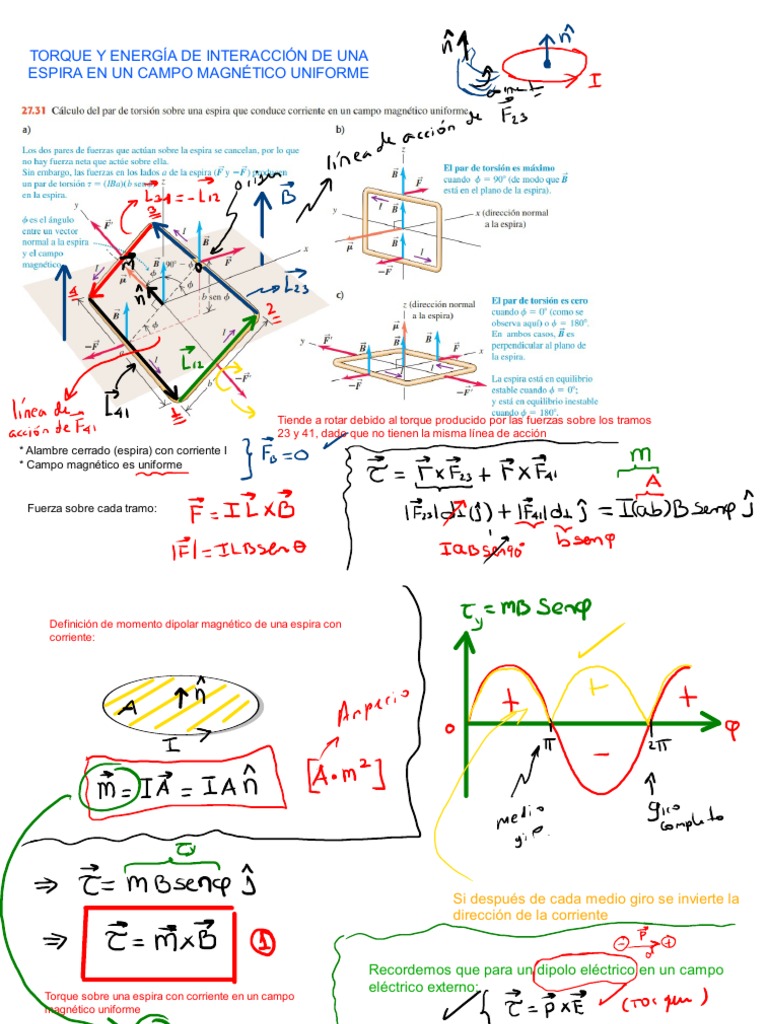 TORQUE Y ENERGÍA DE INTERACCIÓN DE UNA
ESPIRA EN UN CAMPO MAGNÉTICO UNIFORME
n̂
n̂
I
27.31 Cálculo del par de torsión sobre una espira que conduce corriente en un campo magnético uniforme
línea de acción de F⃗23
a)
Los dos pares de fuerzas que actúan sobre la espira se cancelan, por lo que
no hay fuerza neta que actúe sobre ella.
Sin embargo, las fuerzas en los lados a de la espira (F⃗ y −F⃗) producen
un par de torsión τ = (IBa)(b sen
en la espira.
L⃗34 = −L⃗12
origen
B⃗
ϕ es el ángulo
entre un vector
normal a la espira
y el campo
magnético
L⃗23
L⃗12
L⃗41
línea de
acción de F⃗41
b)
El par de torsión es máximo
cuando ϕ = 90° (de modo que B⃗
está en el plano de la espira).
x (dirección normal
a la espira)
c)
z (dirección normal
a la espira)
El par de torsión es cero
cuando ϕ = 0° (como se
observa aquí) o ϕ = 180°.
En ambos casos, B⃗ es
perpendicular al plano de
la espira.
La espira está en equilibrio
estable cuando ϕ = 0°;
y está en equilibrio inestable
cuando ϕ = 180°.
Tiende a rotar debido al torque producido por las fuerzas sobre los tramos
23 y 41, dado que no tienen la misma línea de acción
* Alambre cerrado (espira) con corriente I
* Campo magnético es uniforme
F⃗B = 0
Fuerza sobre cada tramo:
F⃗ = I L⃗ × B⃗
|F⃗| = I L B sen θ
τ⃗ = r⃗ × F⃗23 + r⃗ × F⃗41
m
A
|F⃗23| d⊥(ĵ) + |F⃗41| d⊥ ĵ = I(ab) B sen φ ĵ
I a B sen 90°
b sen φ
Definición de momento dipolar magnético de una espira con
corriente:
n̂
A
I
Amperio
[A·m²]
m⃗ = I A⃗ = I A n̂
τy = m B sen φ
+
+
+
−
0
π
2π
φ
medio
giro
giro
completo
τy
⇒ τ⃗ = m B sen φ ĵ
⇒ τ⃗ = m⃗ × B⃗
1
Torque sobre una espira con corriente en un campo
magnético uniforme
Si después de cada medio giro se invierte la
dirección de la corriente
p⃗
Recordemos que para un dipolo eléctrico en un campo
eléctrico externo:
τ⃗ = p⃗ × E⃗
(Torque)